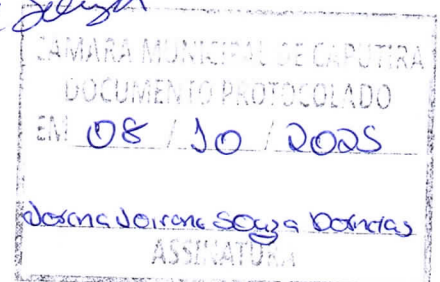 CÂMARA MUNICIPAL DE CAPUTIRA
DOCUMENTO PROTOCOLADO
EM 08 / 10 / 2025
Souza Dornelas
ASSINATURA